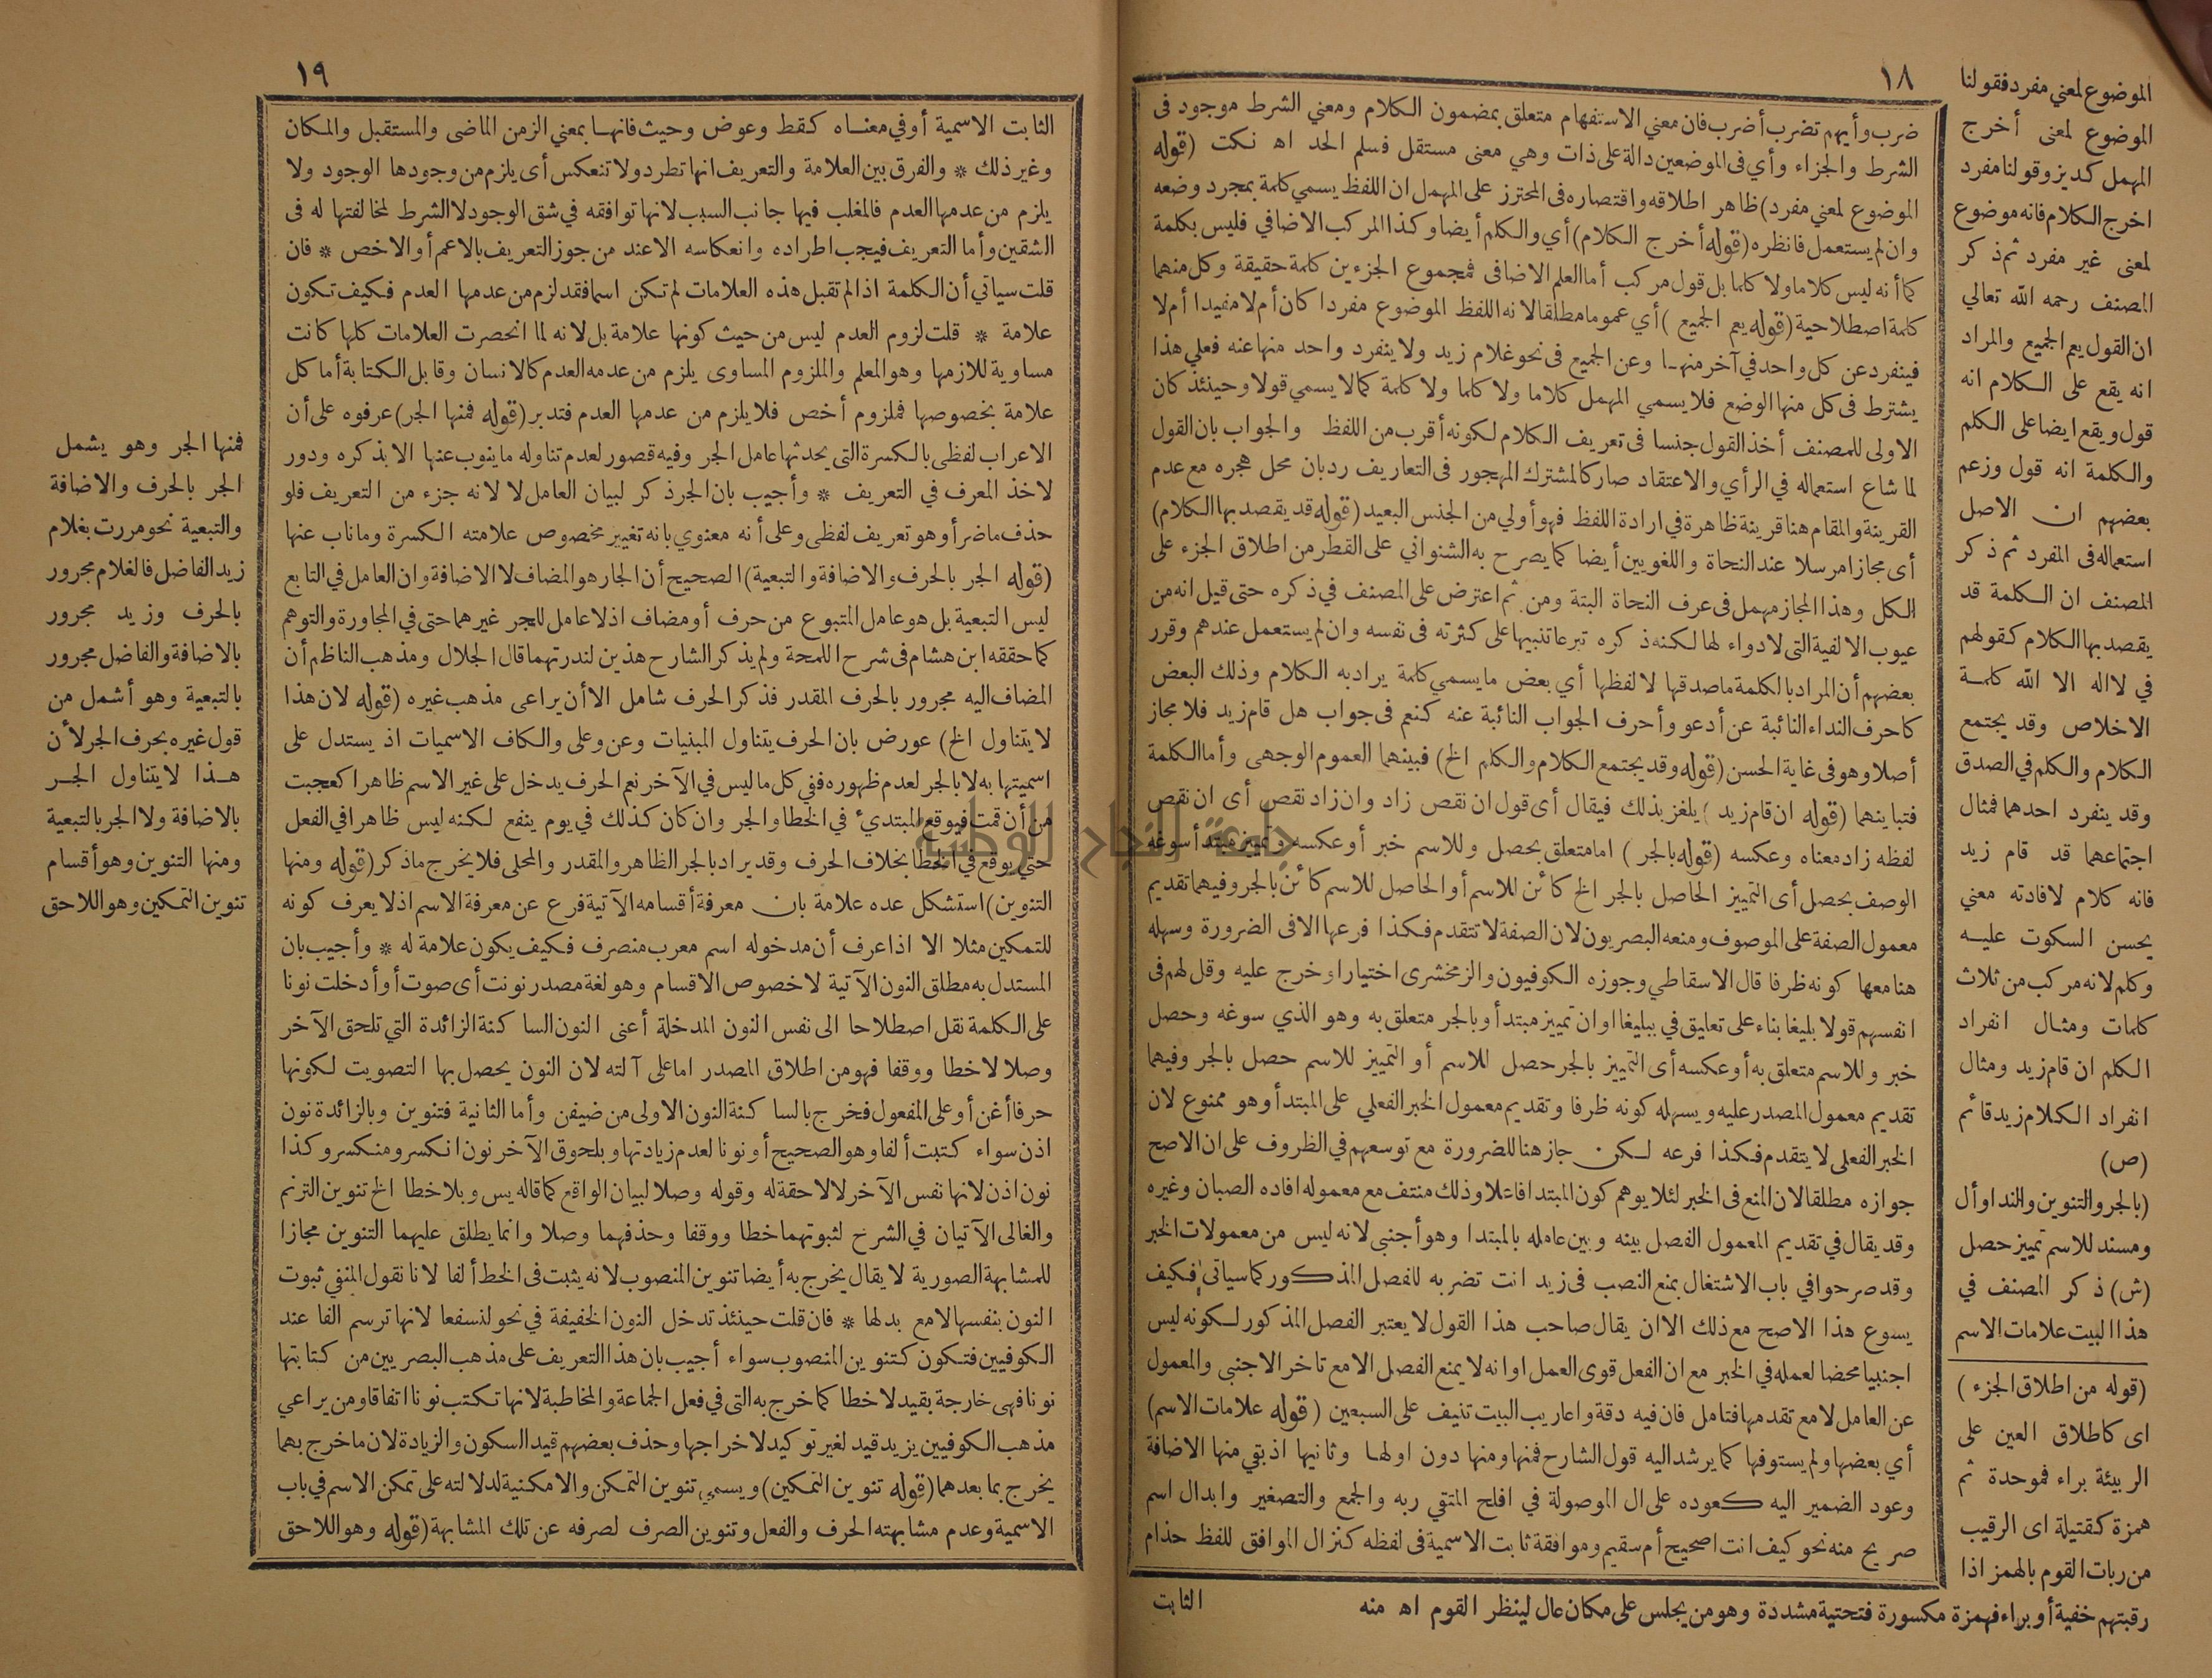 ١٨
ضرب وأيهم تضرب أضرب فان معني الاستفهام متعلق بمضمون الكلام ومعني الشرط موجود فى
الشرط والجزاء وأي فى الموضعين دالة على ذات وهي معنى مستقل فسلم الحد اه نكت (قوله
الموضوع لمعني مفرد) ظاهر اطلاقه واقتصاره فى المحترز على المهمل ان اللفظ يسمي كلمة بمجرد وضعه
وان لم يستعمل فانظره (قوله أخرج الكلام) أي والكلم أيضا وكذا المركب الاضافي فليس بكلمة
كما أنه ليس كلاما ولا كلما بل قول مركب أما العلم الاضافى فمجموع الجزءين كلمة حقيقة وكل منهما
كلمة اصطلاحية (قوله يعم الجميع) أي عموما مطلقا لانه اللفظ الموضوع مفردا كان أم لا مفيدا أم لا
فينفرد عن كل واحد في آخر منها وعن الجميع فى نحو غلام زيد ولا ينفرد واحد منها عنه فعلي هذا
يشترط فى كل منها الوضع فلا يسمي المهمل كلاما ولا كلما ولا كلمة كما لا يسمي قولا وحينئذ كان
الاولى للمصنف أخذ القول جنسا فى تعريف الكلام لكونه أقرب من اللفظ والجواب بان القول
لما شاع استعماله في الرأي والاعتقاد صار كالمشترك المهجور فى التعاريف رد بان محل هجره مع عدم
القرينة والمقام هنا قرينة ظاهرة في ارادة اللفظ فهو أولي من الجنس البعيد (قوله قد يقصد بها الكلام)
أى مجازا مرسلا عند النحاة واللغويين أيضا كما يصرح به الشنواني على القطر من اطلاق الجزء على
الكل وهذا المجاز مهمل فى عرف النحاة البتة ومن ثم اعترض على المصنف في ذكره حتى قيل انه من
عيوب الالفية التى لا دواء لها لكنه ذكره تبرعا تنبيها على كثرته فى نفسه وان لم يستعمل عندهم وقرر
بعضهم أن المراد بالكلمة ماصدقها لا لفظها أي بعض ما يسمي كلمة يراد به الكلام وذلك البعض
كاحرف النداء النائبة عن أدعو وأحرف الجواب النائبة عنه كنعم فى جواب هل قام زيد فلا مجاز
أصلا وهو فى غاية الحسن (قوله وقد يجتمع الكلام والكلم الخ) فبينهما العموم الوجهى وأما الكلمة
فتباينهما (قوله ان قام زيد) يلغز بذلك فيقال أى قول ان نقص زاد وان زاد نقص أى ان نقص
لفظه زاد معناه وعكسه (قوله بالجر) اما متعلق بحصل وللاسم خبر أو عكسه وتمييز مبتدأ سوغه
الوصف بحصل أى التمييز الحاصل بالجر الخ كائن للاسم أو الحاصل للاسم كائن بالجر وفيهما تقديم
معمول الصفة على الموصوف ومنعه البصريون لان الصفة لا تتقدم فكذا فرعها الا فى الضرورة وسهله
هنا معها كونه ظرفا قال الاسقاطي وجوزه الكوفيون والزمخشرى اختيارا وخرج عليه وقل لهم فى
انفسهم قولا بليغا بناء على تعليق في ببليغا اوان تمييز مبتدأ وبالجر متعلق به وهو الذي سوغه وحصل
خبر وللاسم متعلق به أو عكسه أى التمييز بالجر حصل للاسم أو التمييز للاسم حصل بالجر وفيهما
تقديم معمول المصدر عليه ويسهله كونه ظرفا وتقديم معمول الخبر الفعلي على المبتدأ وهو ممنوع لان
الخبر الفعلى لا يتقدم فكذا فرعه لكن جاز هنا للضرورة مع توسعهم في الظروف على ان الاصح
جوازه مطلقا لان المنع فى الخبر لئلا يوهم كون المبتدا فاعلا وذلك منتف مع معموله افاده الصبان وغيره
وقد يقال في تقديم المعمول الفصل بينه وبين عامله بالمبتدا وهو أجنبى لانه ليس من معمولات الخبر
وقد صرحوا في باب الاشتغال بمنع النصب فى زيد انت تضربه للفصل المذكور كما سياتى فكيف
يسوع هذا الاصح مع ذلك الا ان يقال صاحب هذا القول لا يعتبر الفصل المذكور لكونه ليس
اجنبيا محضا لعمله في الخبر مع ان الفعل قوى العمل اوانه لا يمنع الفصل الا مع تاخر الاجنبى والمعمول
عن العامل لا مع تقدمها فتامل فان فيه دقة واعاريب البيت تنيف على السبعين (قوله علامات الاسم)
أي بعضها ولم يستوفها كما يرشد اليه قول الشارح فمنها ومنها دون اولها وثانيها اذ بقي منها الاضافة
وعود الضمير اليه كعوده على ال الموصولة في افلح المتقي ربه والجمع والتصغير وابدال اسم
صريح منه نحو كيف انت اصحيح أم سقيم وموافقة ثابت الاسمية فى لفظه كنزال الموافق للفظ حذام
الثابت
الموضوع لمعني مفرد فقولنا
الموضوع لمعنى أخرج
المهمل كديز وقولنا مفرد
اخرج الكلام فانه موضوع
لمعنى غير مفرد ثم ذكر
المصنف رحمه الله تعالي
ان القول يعم الجميع والمراد
انه يقع على الكلام انه
قول ويقع ايضا على الكلم
والكلمة انه قول وزعم
بعضهم ان الاصل
استعماله فى المفرد ثم ذكر
المصنف ان الكلمة قد
يقصد بها الكلام كقولهم
في لا اله الا الله كلمة
الاخلاص وقد يجتمع
الكلام والكلم في الصدق
وقد ينفرد احدهما فمثال
اجتماعهما قد قام زيد
فانه كلام لافادته معني
يحسن السكوت عليه
وكلم لانه مركب من ثلاث
كلمات ومثال انفراد
الكلم ان قام زيد ومثال
انفراد الكلام زيد قائم
(ص)
(بالجر والتنوين والندا وأل
ومسند للاسم تمييز حصل
(ش) ذكر المصنف في
هذا البيت علامات الاسم
(قوله من اطلاق الجزء)
اى كاطلاق العين على
الربيئة براء فموحدة ثم
همزة كقتيلة اى الرقيب
من ربات القوم بالهمز اذا
رقبتهم خفية أو براء فهمزة مكسورة فتحتية مشددة وهو من يجلس على مكان عال لينظر القوم اه منه
١٩
الثابت الاسمية أو في معناه كقط وعوض وحيث فانها بمعني الزمن الماضى والمستقبل والمكان
وغير ذلك * والفرق بين العلامة والتعريف انها تطرد ولا تنعكس أى يلزم من وجودها الوجود ولا
يلزم من عدمها العدم فالمغلب فيها جانب السبب لانها توافقه في شق الوجود لا الشرط لمخالفتها له فى
الشقين وأما التعريف فيجب اطراده وانعكاسه الا عند من جوز التعريف بالاعم أو الاخص * فان
قلت سياتي أن الكلمة اذا لم تقبل هذه العلامات لم تكن اسما فقد لزم من عدمها العدم فكيف تكون
علامة * قلت لزوم العدم ليس من حيث كونها علامة بل لانه لما انحصرت العلامات كلها كانت
مساوية للازمها وهو المعلم والملزوم المساوى يلزم من عدمه العدم كالانسان وقابل الكتابة أما كل
علامة بخصوصها فملزوم أخص فلا يلزم من عدمها العدم فتدبر (قوله فمنها الجر) عرفوه على أن
الاعراب لفظى بالكسرة التى يحدثها عامل الجر وفيه قصور لعدم تناوله ما ينوب عنها الا بذكره ودور
لاخذ المعرف في التعريف * وأجيب بان الجر ذكر لبيان العامل لا لانه جزء من التعريف فلو
حذف ما ضر أو هو تعريف لفظى وعلى أنه معنوي بانه تغيير مخصوص علامته الكسرة وما ناب عنها
(قوله الجر بالحرف والاضافة والتبعية) الصحيح أن الجار هو المضاف لا الاضافة وان العامل في التابع
ليس التبعية بل هو عامل المتبوع من حرف أو مضاف اذ لا عامل للجر غيرهما حتى في المجاورة والتوهم
كما حققه ابن هشام فى شرح اللمحة ولم يذكر الشارح هذين لندرتهما قال الجلال ومذهب الناظم أن
المضاف اليه مجرور بالحرف المقدر فذكر الحرف شامل الا أن يراعى مذهب غيره (قوله لان هذا
لا يتناول الخ) عورض بان الحرف يتناول المبنيات وعن وعلى والكاف الاسميات اذ يستدل على
اسميتها به لا بالجر لعدم ظهوره ففي كل ما ليس في الآخر نعم الحرف يدخل على غير الاسم ظاهرا كعجبت
من أن قمت فيوقع المبتدئ في الخطا والجر وان كان كذلك في يوم ينفع لكنه ليس ظاهرا في الفعل
حتى يوقع في الخطا بخلاف الحرف وقد يراد بالجر الظاهر والمقدر والمحلى فلا يخرج ما ذكر (قوله ومنها
التنوين) استشكل عده علامة بان معرفة أقسامه الآتية فرع عن معرفة الاسم اذ لا يعرف كونه
للتمكين مثلا الا اذا عرف أن مدخوله اسم معرب منصرف فكيف يكون علامة له * وأجيب بان
المستدل به مطلق النون الآتية لا خصوص الاقسام وهو لغة مصدر نونت أى صوت أو أدخلت نونا
على الكلمة نقل اصطلاحا الى نفس النون المدخلة أعنى النون الساكنة الزائدة التي تلحق الآخر
وصلا لا خطا ووقفا فهو من اطلاق المصدر اما على آلته لان النون يحصل بها التصويت لكونها
حرفا أغن أو على المفعول فخرج بالساكنة النون الاولى من ضيفن وأما الثانية فتنوين وبالزائدة نون
اذن سواء كتبت ألفا وهو الصحيح أو نونا لعدم زيادتها وبلحوق الآخر نون انكسر ومنكسر وكذا
نون اذن لانها نفس الآخر لا لاحقة له وقوله وصلا لبيان الواقع كما قاله يس وبلا خطا الخ تنوين الترنم
والغالى الآتيان في الشرح لثبوتهما خطا ووقفا وحذفهما وصلا وانما يطلق عليهما التنوين مجازا
للمشابهة الصورية لا يقال يخرج به أيضا تنوين المنصوب لانه يثبت فى الخط ألفا لانا نقول المنفي ثبوت
النون بنفسها لا مع بدلها * فان قلت حينئذ تدخل النون الخفيفة في نحو لنسفعا لانها ترسم الفا عند
الكوفيين فتكون كتنوين المنصوب سواء أجيب بان هذا التعريف على مذهب البصريين من كتابتها
نونا فهى خارجة بقيد لا خطا كما خرج به التى في فعل الجماعة والمخاطبة لانها تكتب نونا اتفاقا ومن يراعي
مذهب الكوفيين يزيد قيد لغير توكيد لاخراجها وحذف بعضهم قيد السكون والزيادة لان ما خرج بهما
يخرج بما بعدهما (قوله تنوين التمكين) ويسمى تنوين التمكن والامكنية لدلالته على تمكن الاسم في باب
الاسمية وعدم مشابهته الحرف والفعل وتنوين الصرف لصرفه عن تلك المشابهة (قوله وهو اللاحق
فمنها الجر وهو يشمل
الجر بالحرف والاضافة
والتبعية نحو مررت بغلام
زيد الفاضل فالغلام مجرور
بالحرف وزيد مجرور
بالاضافة والفاضل مجرور
بالتبعية وهو أشمل من
قول غيره بحرف الجر لأن
هذا لا يتناول الجر
بالاضافة ولا الجر بالتبعية
ومنها التنوين وهو أقسام
تنوين التمكين وهو اللاحق
جامعة النجاح الوطنية